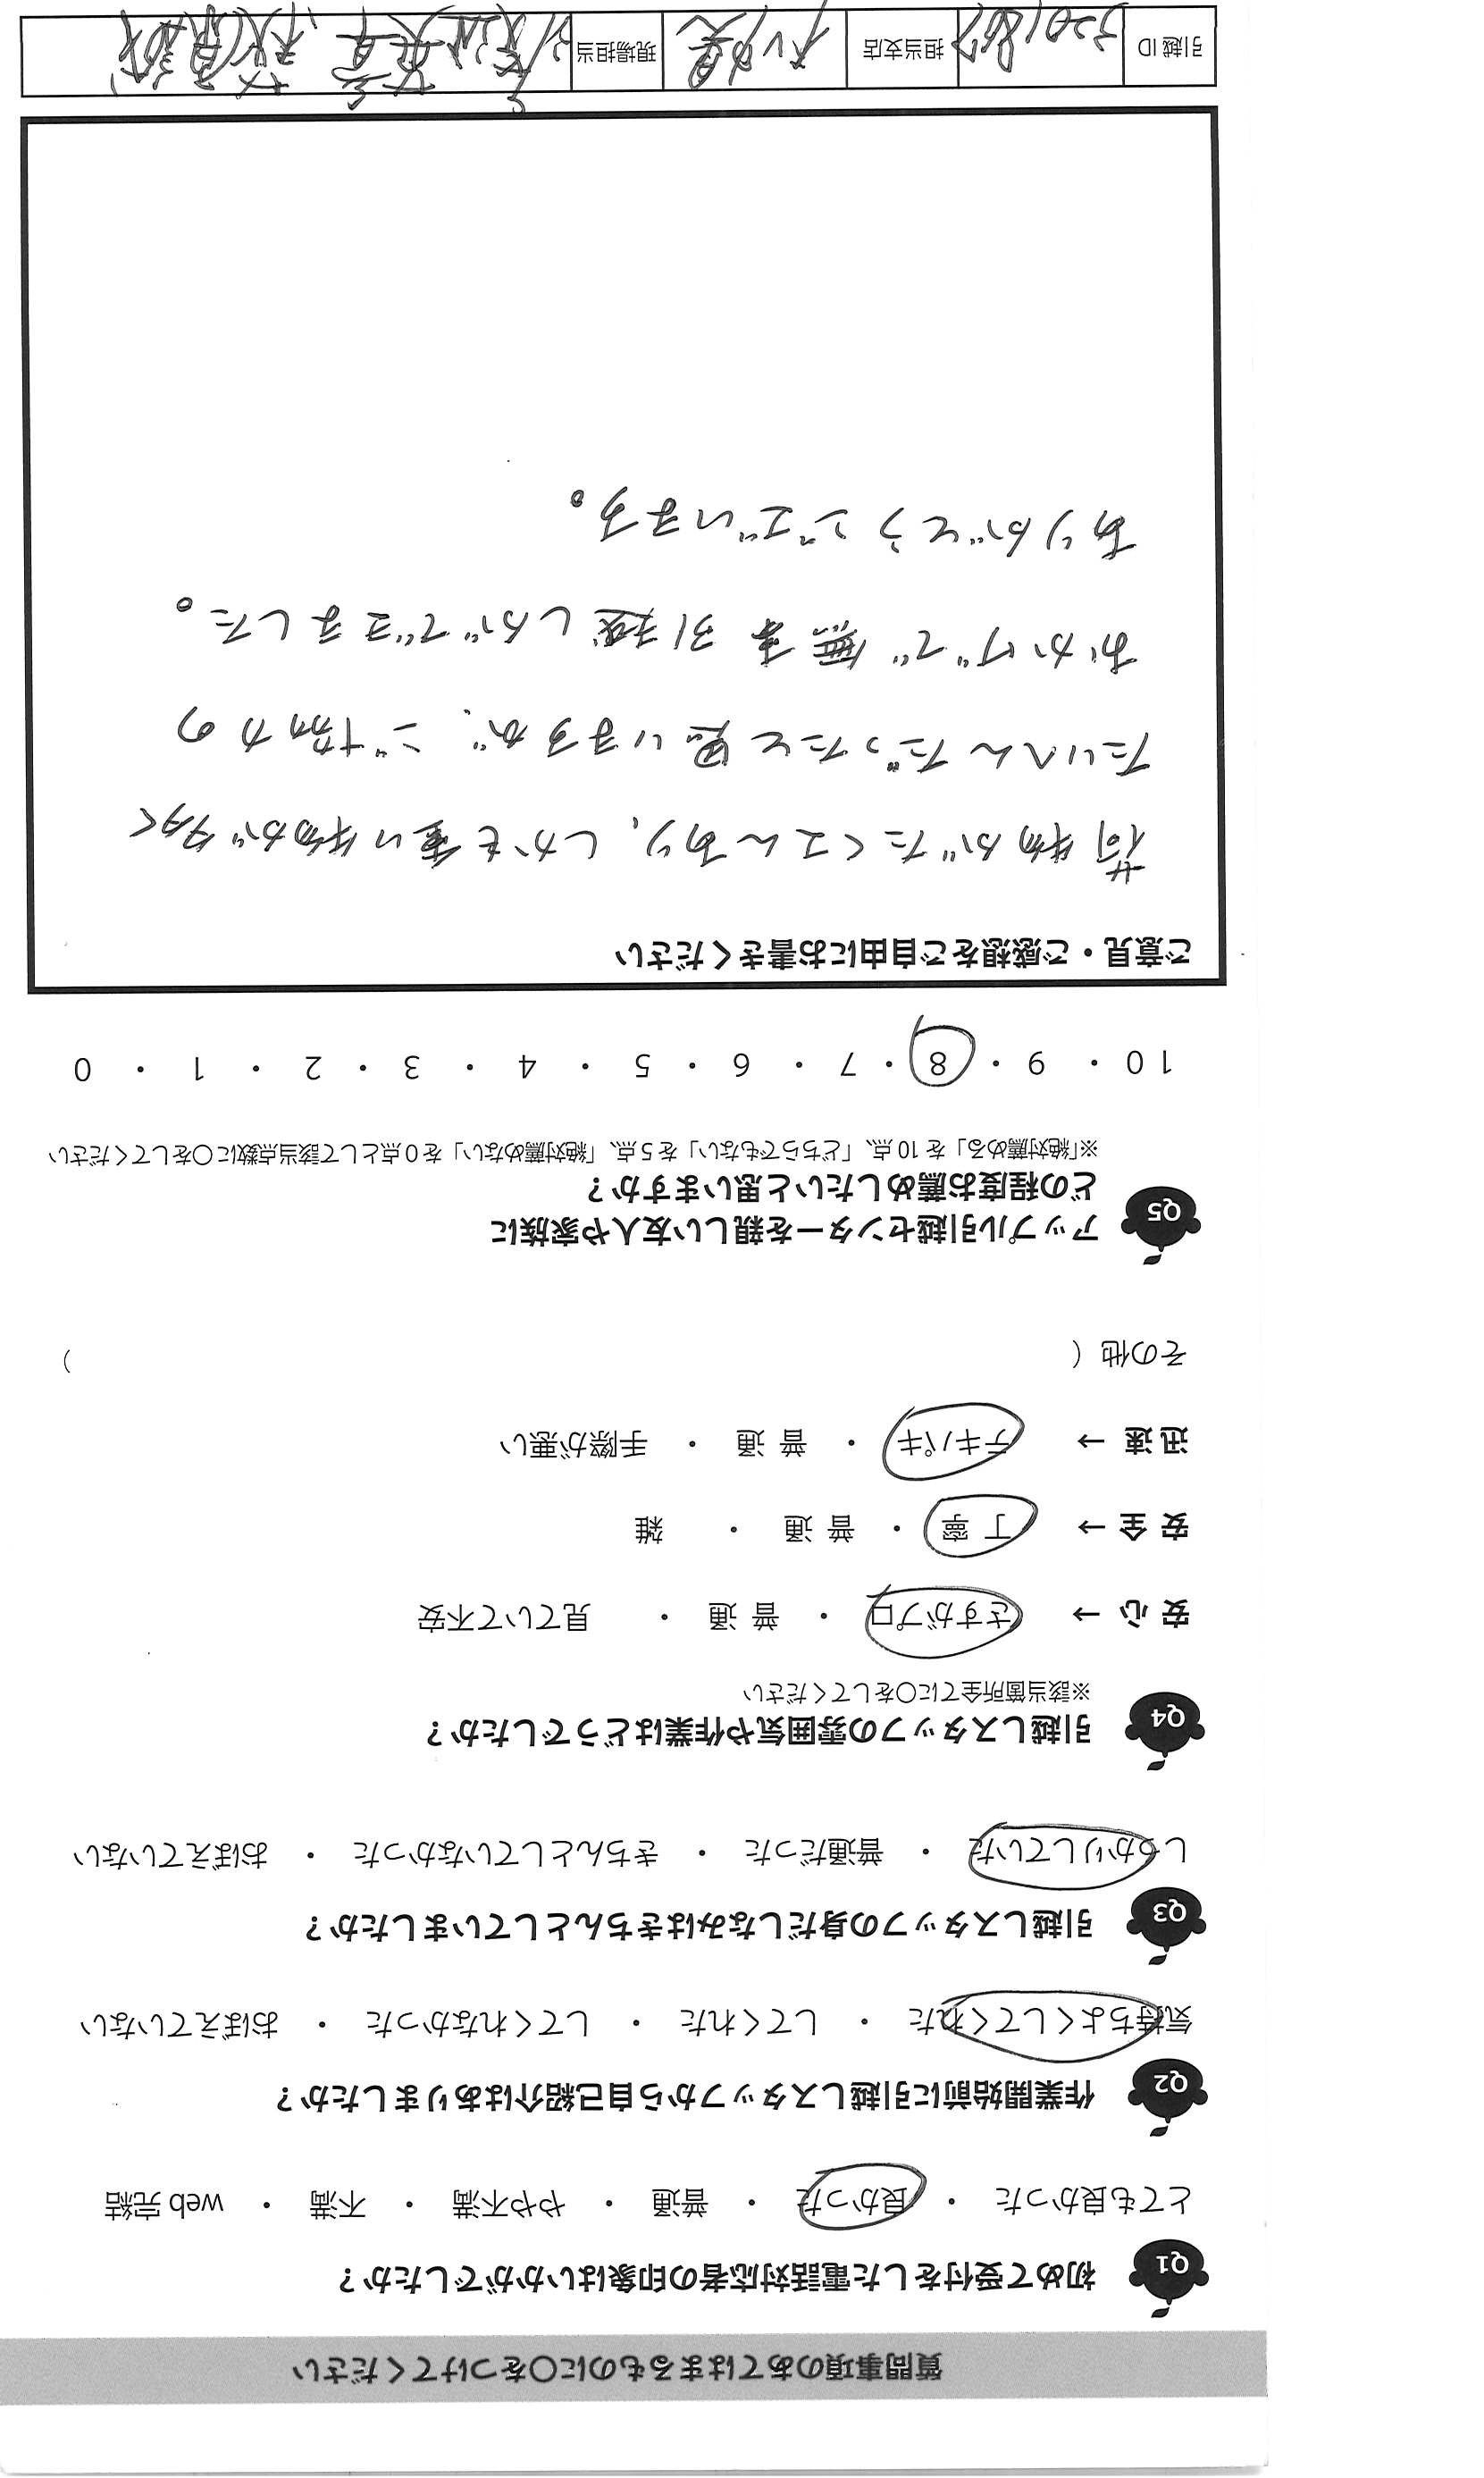 質問事項のあてはまるものに○をつけてください
Q1 初めて受付をした電話対応者の印象はいかがでしたか？
とても良かった ・ 良かった ・ 普通 ・ やや不満 ・ 不満 ・ web完結
Q2 作業開始前に引越しスタッフから自己紹介はありましたか？
気持ちよくしてくれた ・ してくれた ・ してくれなかった ・ おぼえていない
Q3 引越しスタッフの身だしなみはきちんとしていましたか？
しっかりしていた ・ 普通だった ・ きちんとしていなかった ・ おぼえていない
Q4 引越しスタッフの雰囲気や作業はどうでしたか？
※該当箇所全てに○をしてください
安心→ さすがプロ ・ 普通 ・ 見ていて不安
安全→ 丁寧 ・ 普通 ・ 雑
迅速→ テキパキ ・ 普通 ・ 手際が悪い
その他（ ）
Q5 アップル引越センターを親しい友人や家族に
どの程度お薦めしたいと思いますか？
※「絶対薦める」を10点、「どちらでもない」を5点、「絶対薦めない」を0点として該当点数に○をしてください
10 ・ 9 ・ 8 ・ 7 ・ 6 ・ 5 ・ 4 ・ 3 ・ 2 ・ 1 ・ 0
ご意見・ご感想をご自由にお書きください
荷物がたくさんあり、しかも重い物が多く
たいへんだったと思いますが、ご協力の
おかげで無事引越しができました。
ありがとうございます。
引越ID 担当支店 現場担当